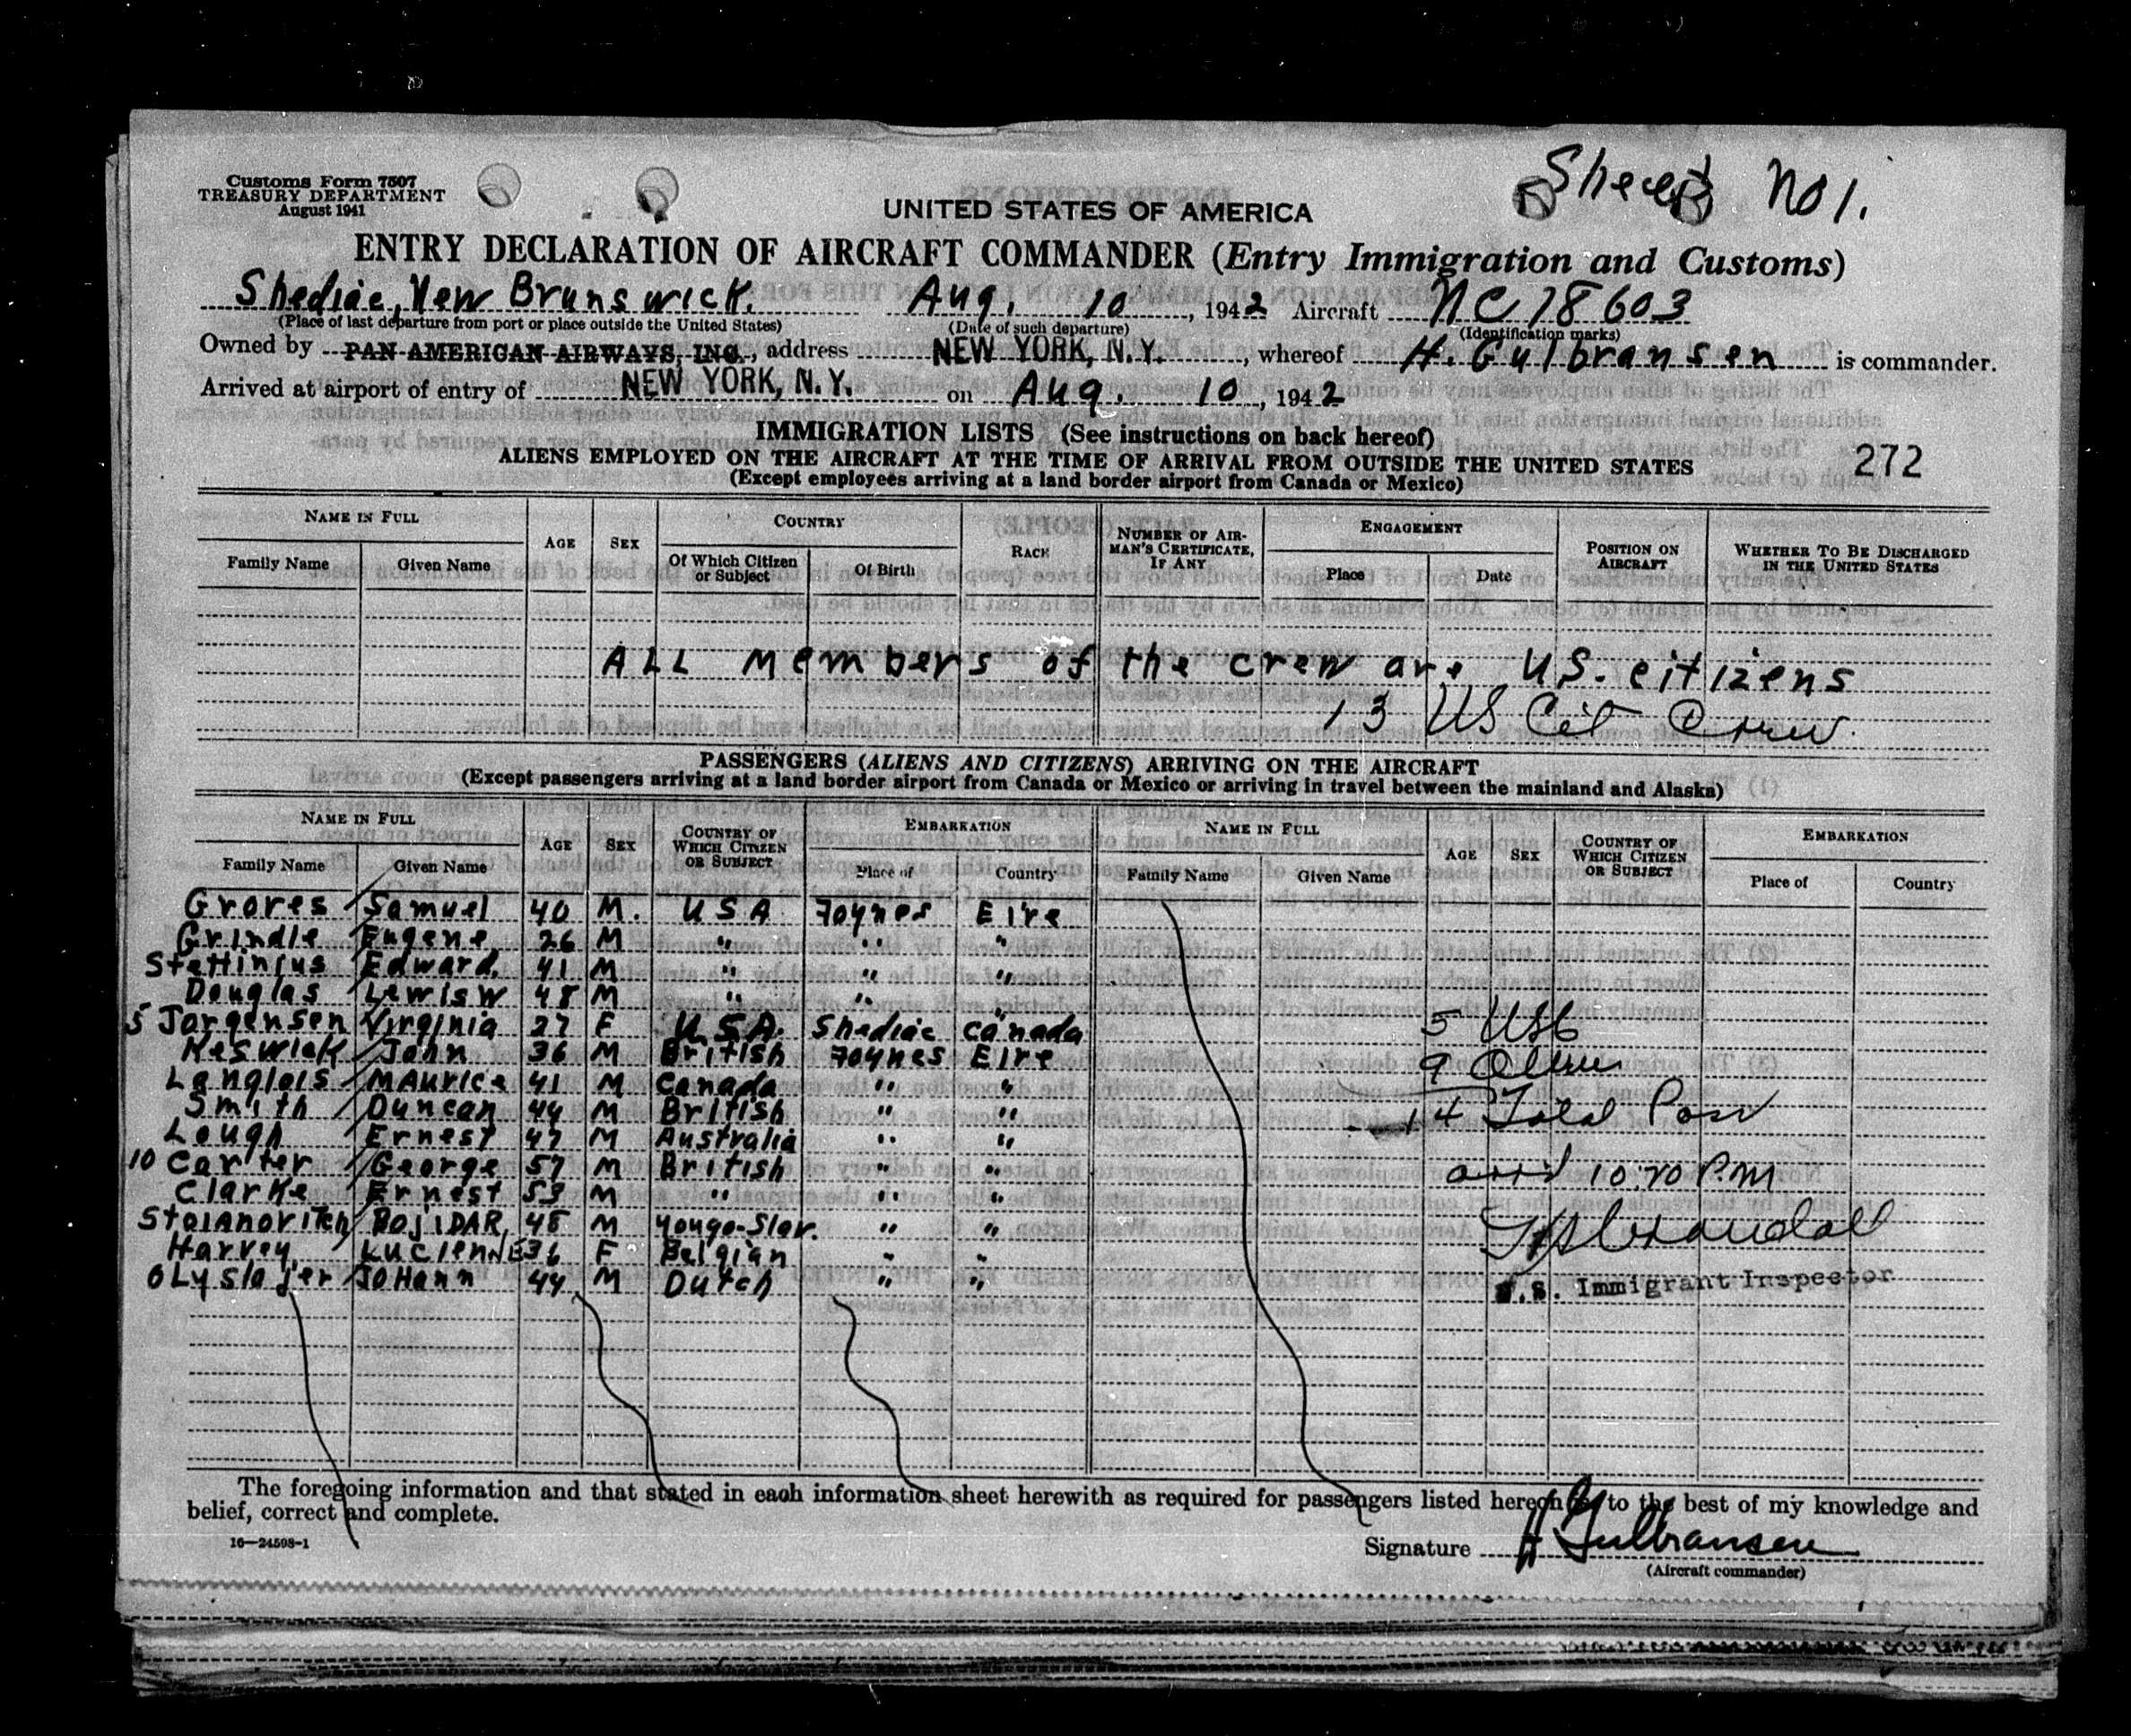 Customs Form 7507
TREASURY DEPARTMENT
August 1941
Sheet No 1.
UNITED STATES OF AMERICA
ENTRY DECLARATION OF AIRCRAFT COMMANDER (Entry Immigration and Customs)
Shediac, New Brunswick. Aug. 10, 1942 Aircraft NC 18603
(Place of last departure from port or place outside the United States) (Date of such departure) (Identification marks)
Owned by PAN AMERICAN AIRWAYS, INC., address NEW YORK, N.Y., whereof H. Gulbransen is commander.
Arrived at airport of entry of NEW YORK, N.Y. on Aug. 10, 1942
IMMIGRATION LISTS (See instructions on back hereof)
ALIENS EMPLOYED ON THE AIRCRAFT AT THE TIME OF ARRIVAL FROM OUTSIDE THE UNITED STATES
272
(Except employees arriving at a land border airport from Canada or Mexico)
NAME IN FULL AGE SEX COUNTRY RACE NUMBER OF AIRMAN'S CERTIFICATE, IF ANY ENGAGEMENT POSITION ON AIRCRAFT WHETHER TO BE DISCHARGED IN THE UNITED STATES
Family Name Given Name Of Which Citizen or Subject Of Birth Place Date
ALL members of the crew are U.S. citizens
13 US Cit Crew.
PASSENGERS (ALIENS AND CITIZENS) ARRIVING ON THE AIRCRAFT
(Except passengers arriving at a land border airport from Canada or Mexico or arriving in travel between the mainland and Alaska)
NAME IN FULL AGE SEX COUNTRY OF WHICH CITIZEN OR SUBJECT EMBARKATION NAME IN FULL AGE SEX COUNTRY OF WHICH CITIZEN OR SUBJECT EMBARKATION
Family Name Given Name Place of Country Family Name Given Name Place of Country
Groves Samuel 40 M. USA Foynes Eire
Grindle Eugene 26 M " " "
Stettinius Edward. 41 M " " "
Douglas Lewis W 48 M " " "
5 Jorgensen Virginia 27 F U.S.A. Shediac Canada 5 USC
Keswick John 36 M British Foynes Eire 9 Aliens
Langlois Maurice 41 M Canada " "
Smith Duncan 44 M British " " 14 Total Pass
Lough Ernest 47 M Australia " "
10 Carter George 57 M British " " arrd 10:20 P.M
Clarke Ernest 53 M " " "
Stoianovitch BOJIDAR 48 M Yougo-Slav. " "
Harvey LUCIENNE 36 F Belgian " "
OLyslager JOHann 44 M Dutch " " U.S. Immigrant Inspector
The foregoing information and that stated in each information sheet herewith as required for passengers listed hereon is to the best of my knowledge and
belief, correct and complete.
16—24598-1
Signature H Gulbransen
(Aircraft commander)